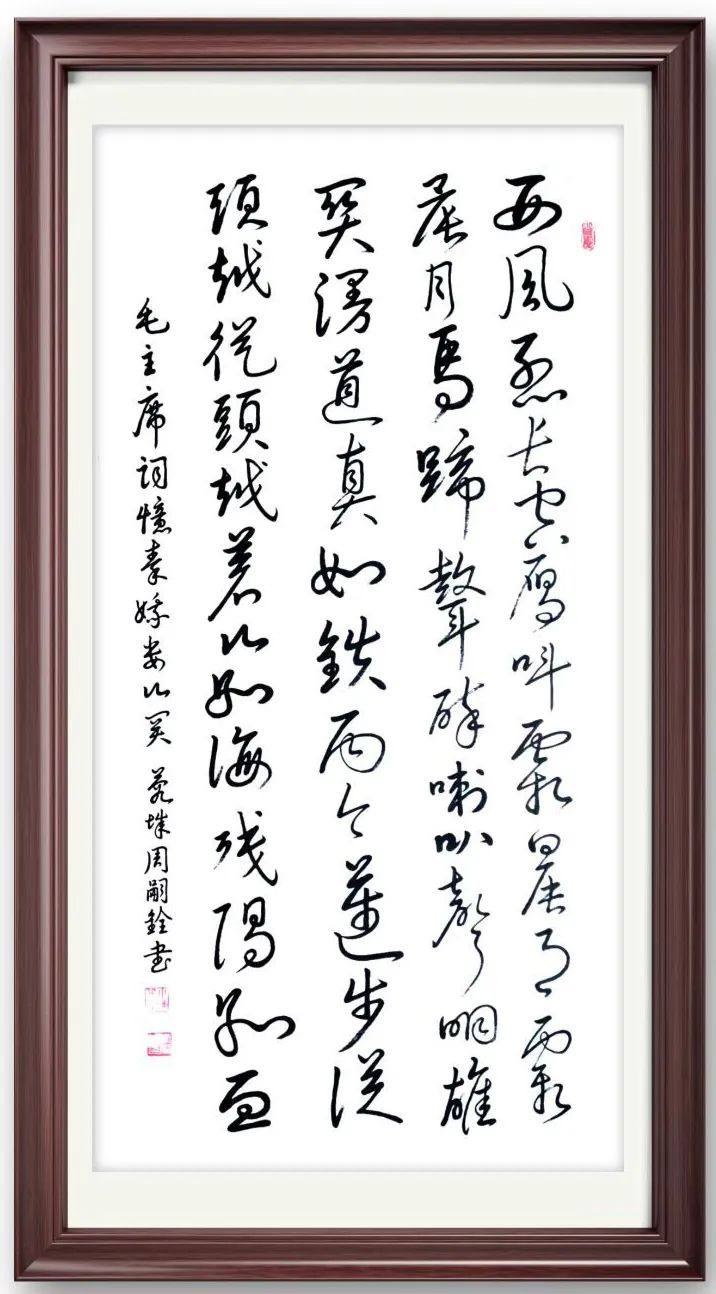 西風烈长空雁叫霜晨月霜
晨月馬蹄聲碎喇叭聲咽雄
関漫道真如鉄而今邁步從
頭越從頭越蒼山如海残陽如血
毛主席詞憶秦娥娄山关 周嗣銓書